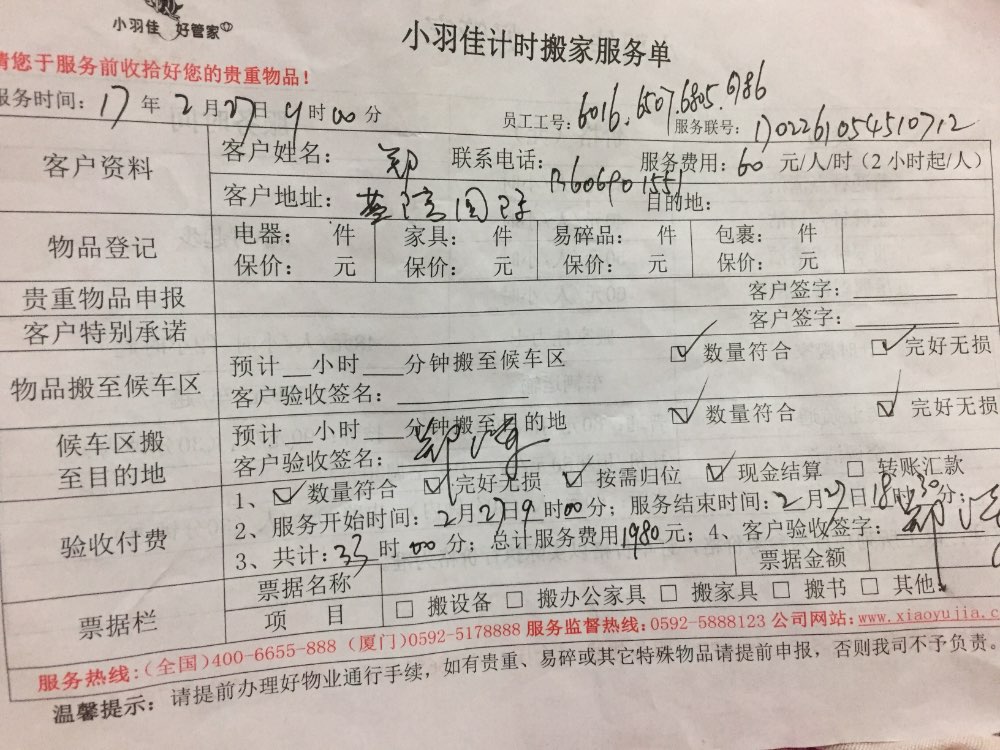 小羽佳 好管家
小羽佳计时搬家服务单
请您于服务前收拾好您的贵重物品！
服务时间：17年2月27日9时00分 员工工号：6016.6507.6805.6986 服务联号：1702261054510712
客户资料 客户姓名：郑 联系电话：13606901551 服务费用：60元/人/时（2小时起/人）
客户地址： 目的地：
物品登记 电器： 件 家具： 件 易碎品： 件 包裹： 件
保价： 元 保价： 元 保价： 元 保价： 元
贵重物品申报 客户签字：
客户特别承诺 客户签字：
物品搬至候车区 预计 小时 分钟搬至候车区 ☑ 数量符合 ☑ 完好无损
客户验收签名：
候车区搬至目的地 预计 小时 分钟搬至目的地 ☑ 数量符合 ☑ 完好无损
客户验收签名：郑
验收付费 1、☑ 数量符合 ☑ 完好无损 ☑ 按需归位 ☑ 现金结算 □ 转账汇款
2、服务开始时间：2月27日9时00分；服务结束时间：2月27日18时30分；
3、共计：33时00分；总计服务费用1980元；4、客户验收签字：郑
票据栏 票据名称 票据金额
项 目 □ 搬设备 □ 搬办公家具 □ 搬家具 □ 搬书 □ 其他
服务热线：(全国)400-6655-888 (厦门)0592-5178888 服务监督热线：0592-5888123 公司网站：www.xiaoyujia.c
温馨提示：请提前办理好物业通行手续，如有贵重、易碎或其它特殊物品请提前申报，否则我司不予负责。